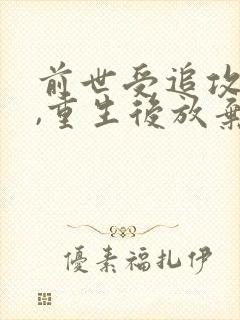 前世受追攻
,重生後放棄
優素福扎伊